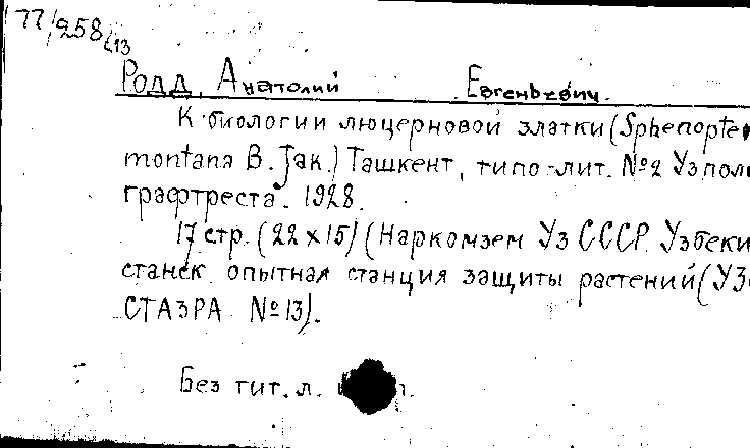 77/258
13
Родд, Анатолий Евгеньевич.
К биологии люцерновой златки (Sphenopte
montana B. Jak.) Ташкент, типо-лит. №2 Узполи
графтреста. 1928.
17 стр. (22x15) (Наркомзем Уз ССР. Узбеки
станск. опытная станция защиты растений (УЗ
СТАЗРА №13).
Без тит. л.